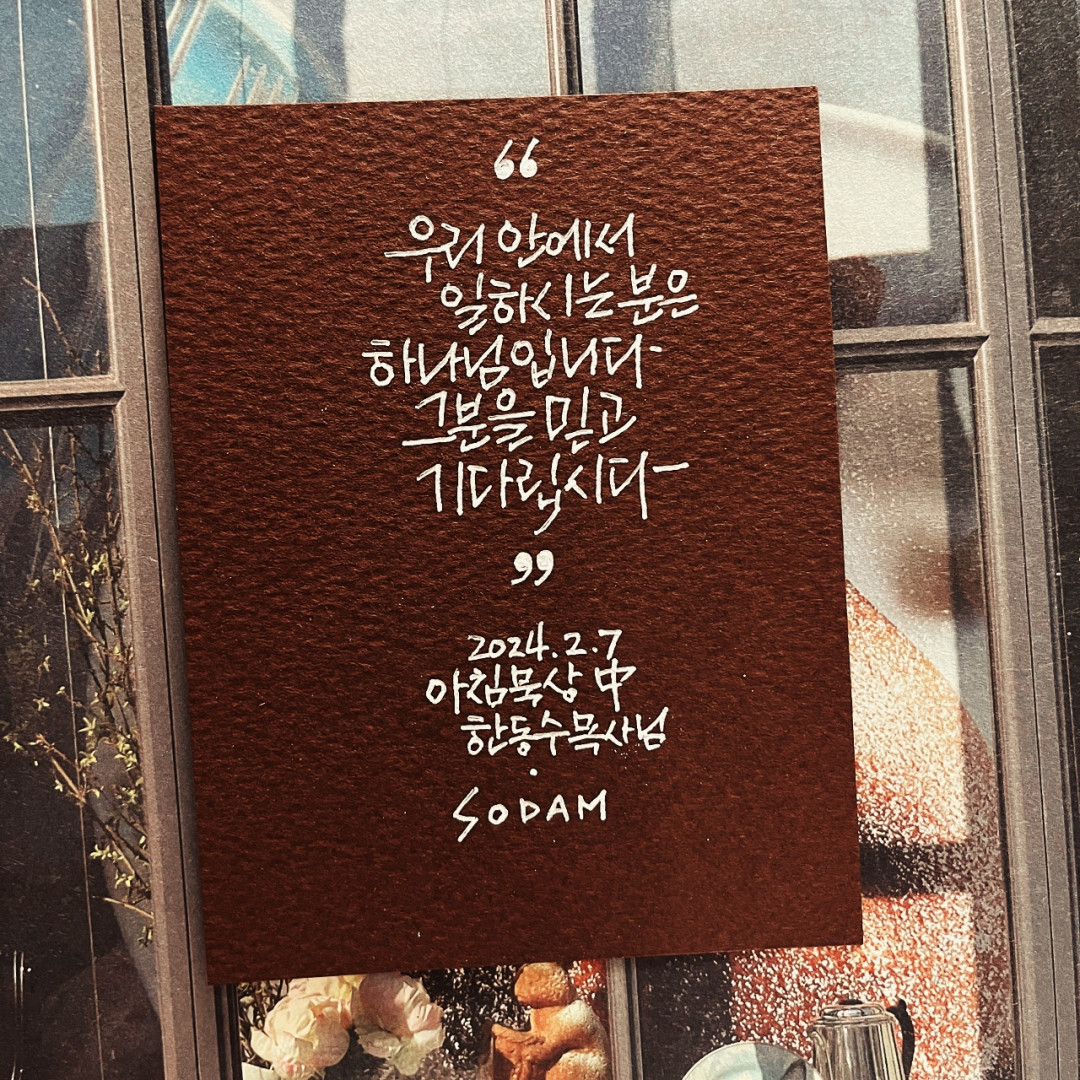 “
우리 안에서
일하시는 분은
하나님입니다
그분을 믿고
기다립시다
”
2024.2.7
아침묵상 中
한동수목사님
·
SODAM